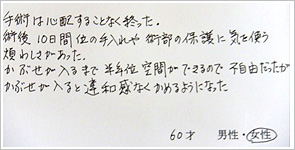 手術は心配することなく終った。
術後10日間位の手入れや術部の保護に気を使う
煩わしさがあった。
かぶせが入るまで半年位空間ができるので不自由だったが
かぶせが入ると違和感なくかめるようになった
60才 男性・女性